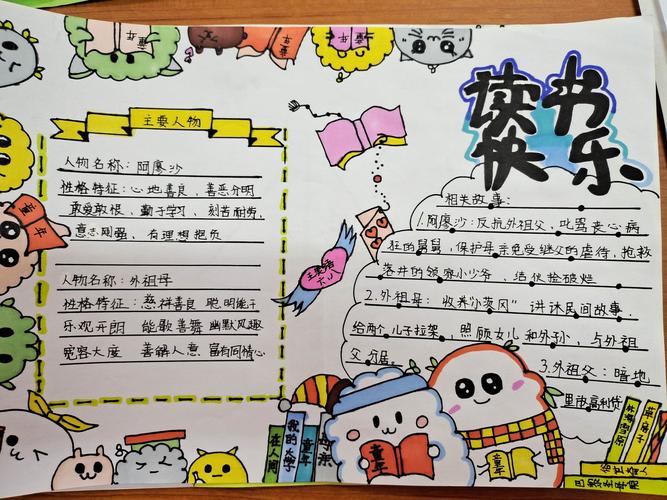 读书
快乐
主要人物
人物名称：阿廖沙
性格特征：心地善良，善恶分明
敢爱敢恨，勤于学习、刻苦耐劳，
意志刚强，有理想抱负
人物名称：外祖母
性格特征：慈祥善良 聪明能干
乐观开朗 能歌善舞 幽默风趣
宽容大度 善解人意 富有同情心
相关故事：
1.阿廖沙：反抗外祖父，叱骂丧心病
狂的舅舅，保护母亲免受继父的虐待，抢救
落井的领家小少爷，结伙捡破烂
2.外祖母：收养“小茨冈”讲述民间故事，
给两个儿子拉架，照顾女儿和外孙，与外祖
父分居。
3.外祖父：暗地
里放高利贷
童年
童年
童年
在人间
我的大学
童年
母亲
童年
童年
林海雪原
草房子
俗世奇人
巴黎圣母院